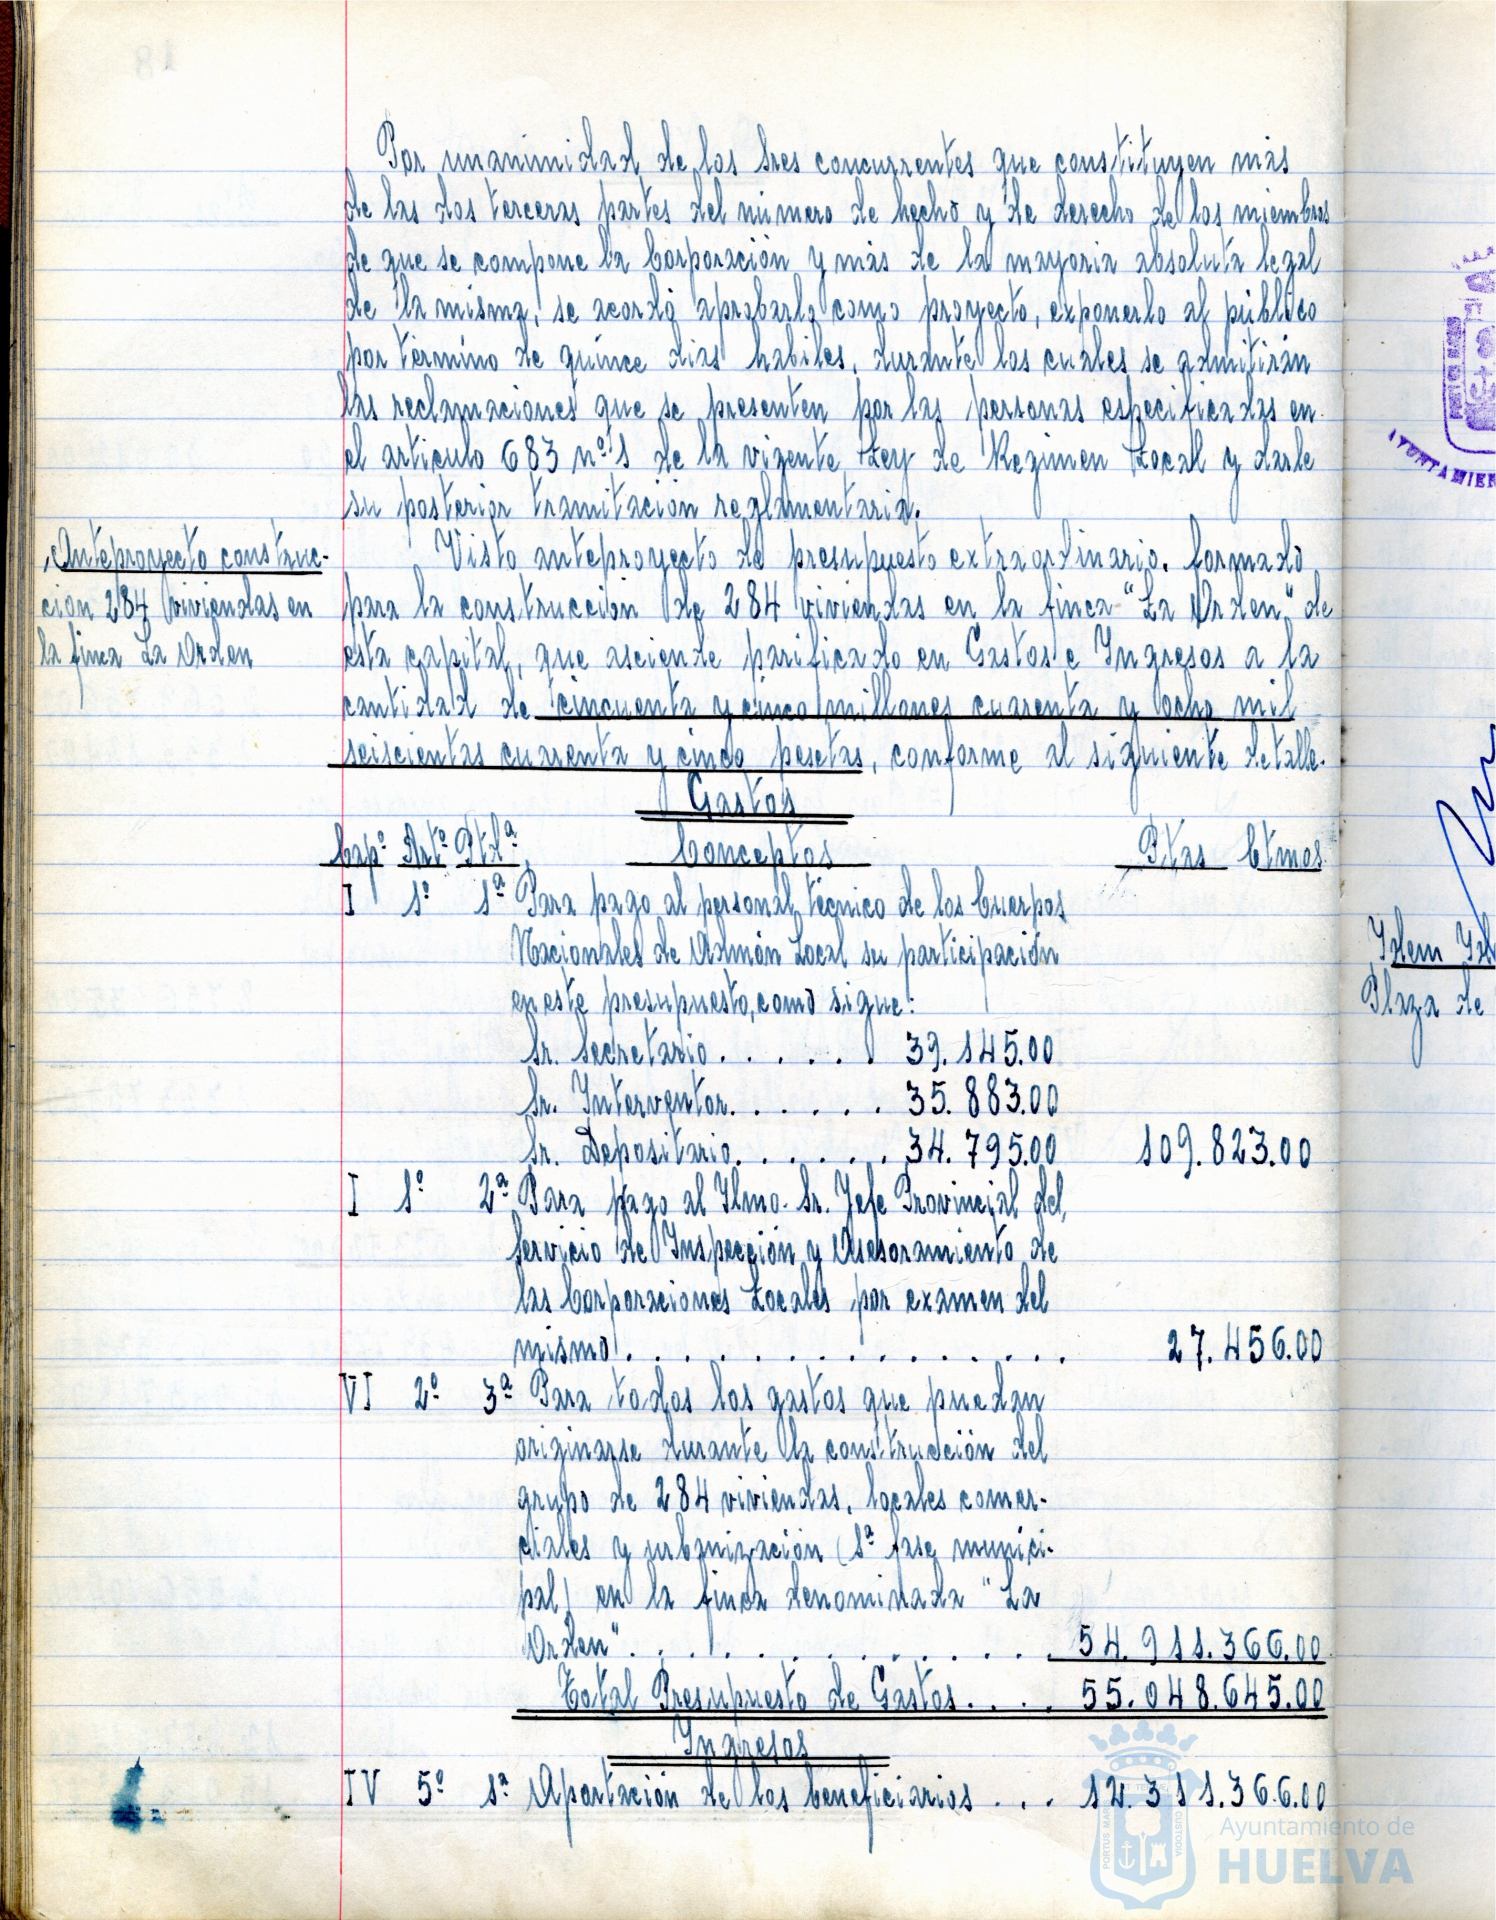 Por unanimidad de los Sres concurrentes que constituyen más
de las dos terceras partes del número de hecho y de derecho de los miembros
de que se compone la Corporación y más de la mayoria absoluta legal
de la misma, se acordó aprobarlo como proyecto, exponerlo al público
por término de quince dias habiles, durante los cuales se admitirán
las reclamaciones que se presenten por las personas especificadas en
el articulo 683 nº 1 de la vigente Ley de Regimen Local y darle
su posterior tramitación reglamentaria.
Anteproyecto construc-
ción 284 viviendas en
la finca La Orden
Visto anteproyecto de presupuesto extraordinario, formado
para la construcción de 284 viviendas en la finca "La Orden" de
esta capital, que asciende parificado en Gastos e Ingresos a la
cantidad de cincuenta y cinco millones cuarenta y ocho mil
seiscientas cuarenta y cinco pesetas, conforme al siguiente detalle.
Gastos
Capº Artº Ptdª Conceptos Ptas Ctmos
I 1º 1ª Para pago al personal técnico de los Cuerpos
Nacionales de Admón Local su participación
en este presupuesto, como sigue:
Sr. Secretario . . . . . . 39.145.00
Sr. Interventor. . . . . . 35.883.00
Sr. Depositario. . . . . . 34.795.00 109.823.00
I 1º 2ª Para pago al Ilmo. Sr. Jefe Provincial del
Servicio de Inspección y Asesoramiento de
las Corporaciones Locales por examen del
mismo . . . . . . . . . . . 27.456.00
VI 2º 3ª Para todos los gastos que puedan
originarse durante la construcción del
grupo de 284 viviendas, locales comer-
ciales y urbanización (1ª fase munici-
pal) en la finca denominada "La
Orden" . . . . . . . . . . . 54.911.366.00
Total Presupuesto de Gastos. . . . 55.048.645.00
Ingresos
IV 5º 1ª Aportación de los beneficiarios . . . 12.311.366.00
Idem
Plaza de
AYUNTAMIEN
PORTUS MARIS
CUSTODIA
Ayuntamiento de
HUELVA